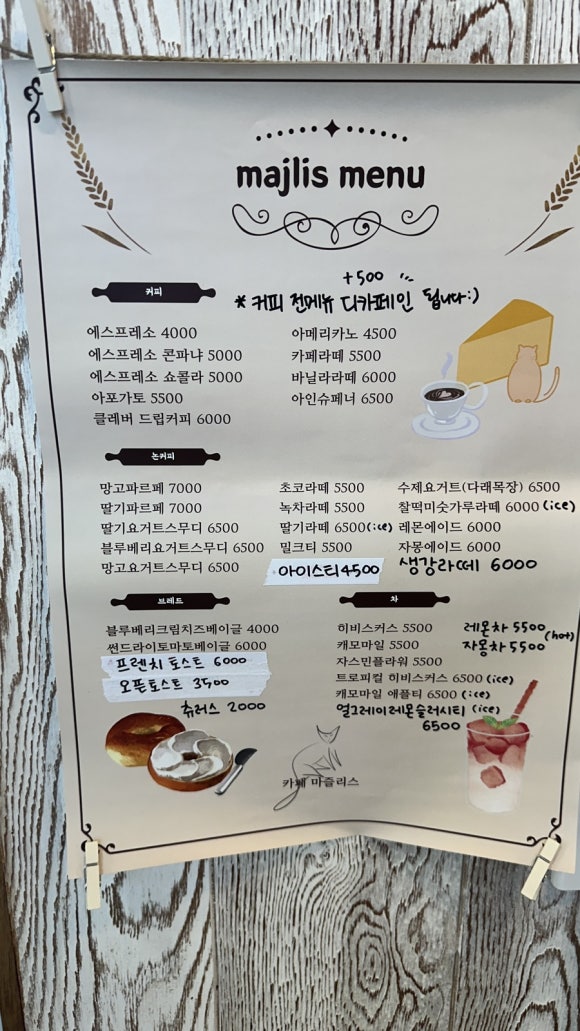 majlis menu
커피
+500
* 커피 전메뉴 디카페인 됩니다:)
에스프레소 4000
에스프레소 콘파냐 5000
에스프레소 쇼콜라 5000
아포가토 5500
클레버 드립커피 6000
아메리카노 4500
카페라떼 5500
바닐라라떼 6000
아인슈페너 6500
논커피
망고파르페 7000
딸기파르페 7000
딸기요거트스무디 6500
블루베리요거트스무디 6500
망고요거트스무디 6500
초코라떼 5500
녹차라떼 5500
딸기라떼 6500(ice)
밀크티 5500
아이스티4500
수제요거트(다래목장) 6500
찰떡미숫가루라떼 6000 (ice)
레몬에이드 6000
자몽에이드 6000
생강라떼 6000
브레드
블루베리크림치즈베이글 4000
썬드라이토마토베이글 6000
프렌치 토스트 6000
오픈토스트 3500
츄러스 2000
차
히비스커스 5500
캐모마일 5500
자스민플라워 5500
트로피컬 히비스커스 6500 (ice)
캐모마일 애플티 6500 (ice)
얼그레이레몬슬러시티 (ice)
6500
레몬차 5500
자몽차 5500
(hot)
카페 마즐리스